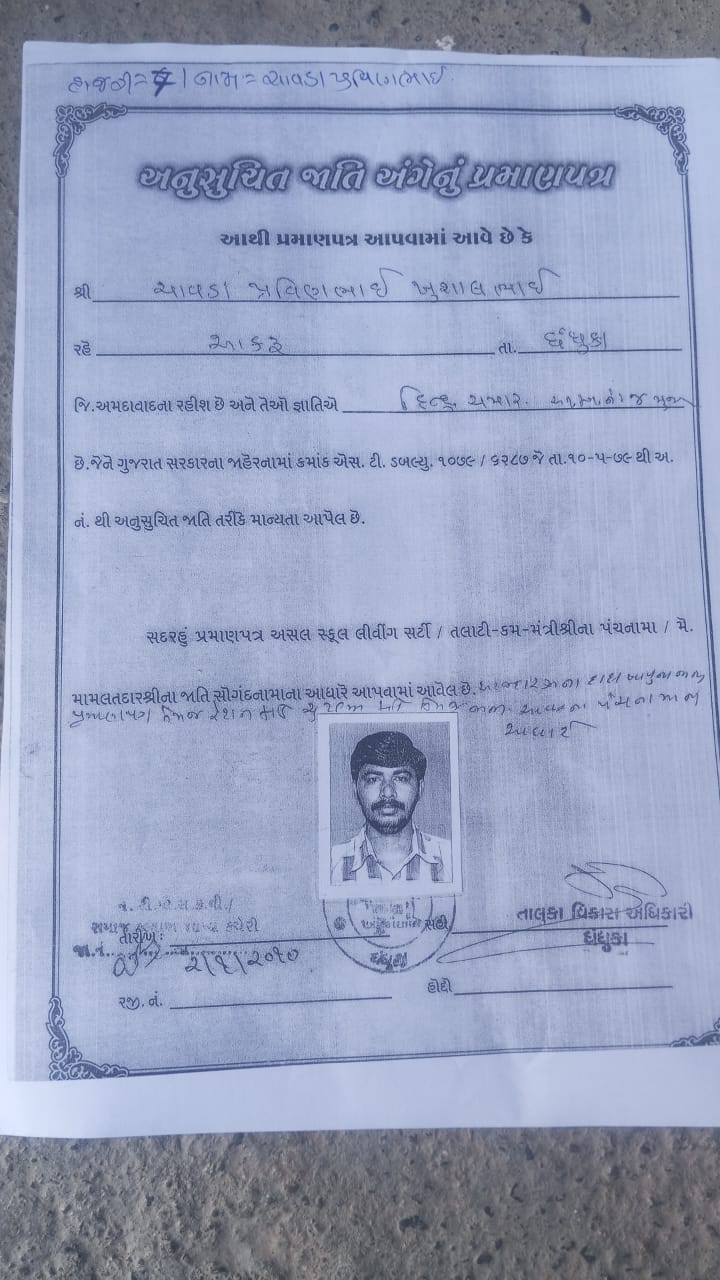 નામ = ચાવડા પ્રવિણભાઈ
અનુસુચિત જાતિ અંગેનું પ્રમાણપત્ર
આથી પ્રમાણપત્ર આપવામાં આવે છે કે
શ્રી ચાવડા પ્રવિણભાઈ ખુશાલભાઈ
રહે આકરૂ તા. ધંધુકા
જિ.અમદાવાદના રહીશ છે અને તેઓ જ્ઞાતિએ હિન્દુ ચમાર
છે.જેને ગુજરાત સરકારના જાહેરનામાં ક્રમાંક એસ. ટી. ડબલ્યુ. ૧૦૭૯ / ૬૨૮૭ જે તા.૧૦-૫-૭૯ થી અ.
નં. થી અનુસુચિત જાતિ તરીકે માન્યતા આપેલ છે.
સદરહું પ્રમાણપત્ર અસલ સ્કૂલ લીવીંગ સર્ટી / તલાટી-કમ-મંત્રીશ્રીના પંચનામા / મે.
મામલતદારશ્રીના જાતિ સોગંદનામાના આધારે આપવામાં આવેલ છે.
તાલુકા વિકાસ અધિકારી
તારીખ :
ધંધુકા
જા.નં.
હોદ્દો
રજી. નં.